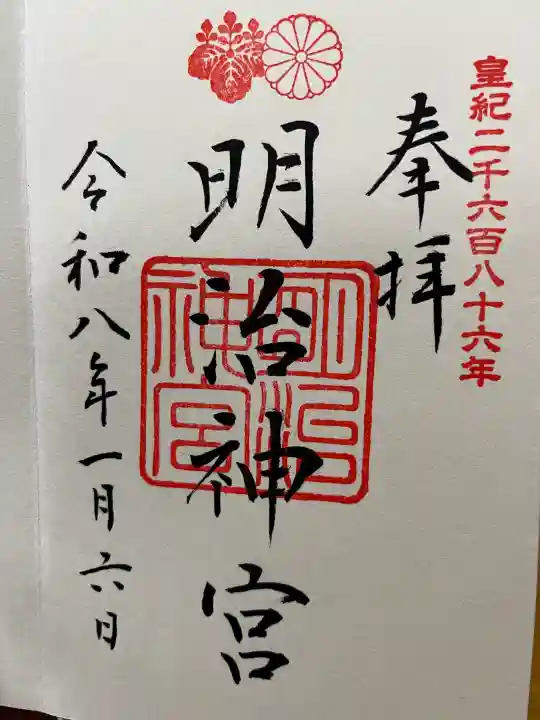 皇紀二千六百八十六年
奉拝
明治神宮
明治神宮
令和八年一月六日